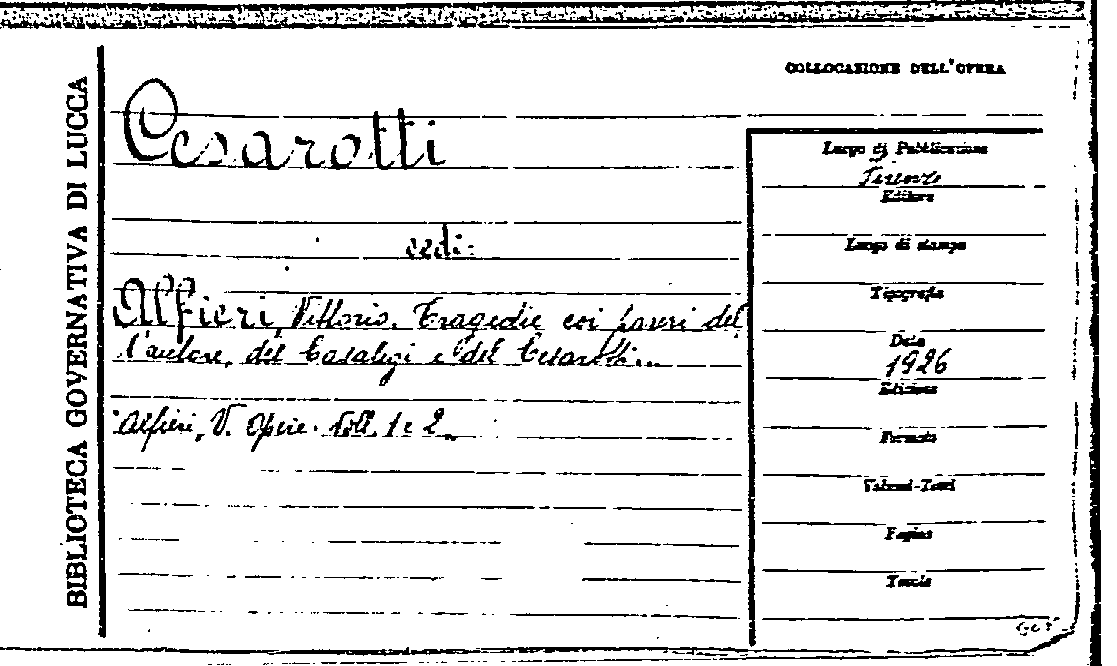 BIBLIOTECA GOVERNATIVA DI LUCCA
COLLOCAZIONE DELL'OPERA
Cesarotti
vedi:
Alfieri, Vittorio. Tragedie coi pareri del
l'autore, del Casaligi e del Cesarotti...
Alfieri, V. Opere. Voll. 1 e 2.
Luogo di Pubblicazione
Firenze
Editore
Luogo di stampa
Tipografia
Data
1926
Edizione
Formato
Volumi-Tomi
Pagine
Tavole